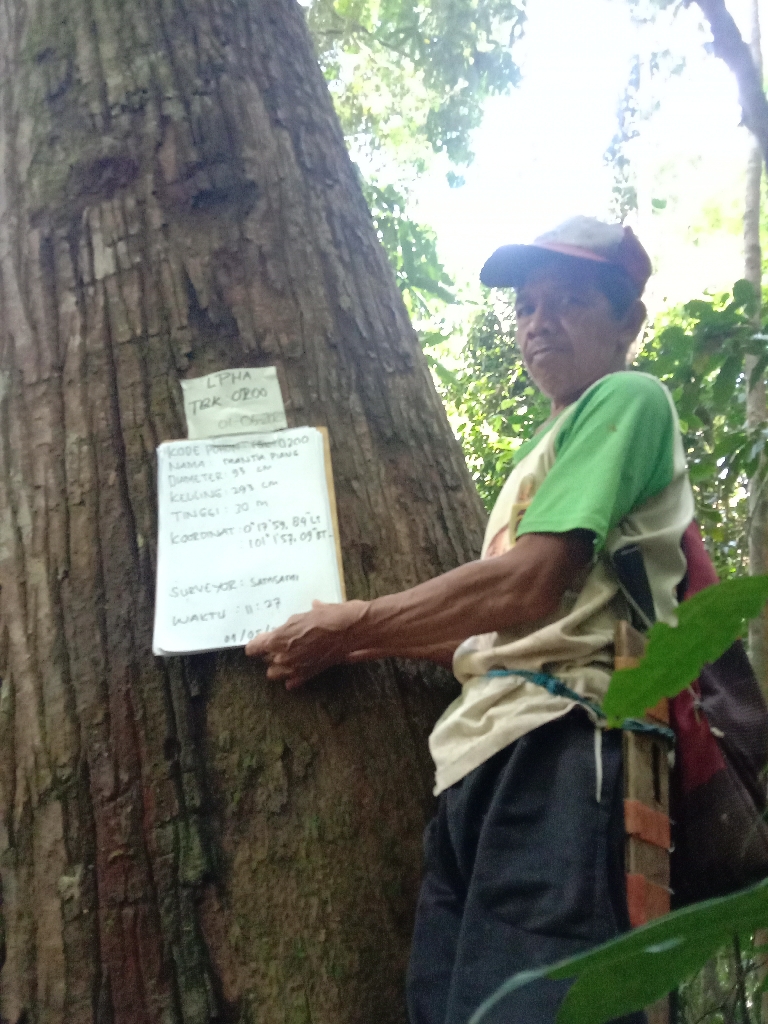 LPHA
TBK 0200
01-05-20
KODE POHON 0200
NAMA : MANTIA PUANG
DIAMETER : 93 CM
KELILING : 293 CM
TINGGI : 30 M
KOORDINAT : 0° 17' 59, 84" LS
: 101° 1' 57, 09" BT
SURVEYOR :
WAKTU : 11 : 27
01/05/